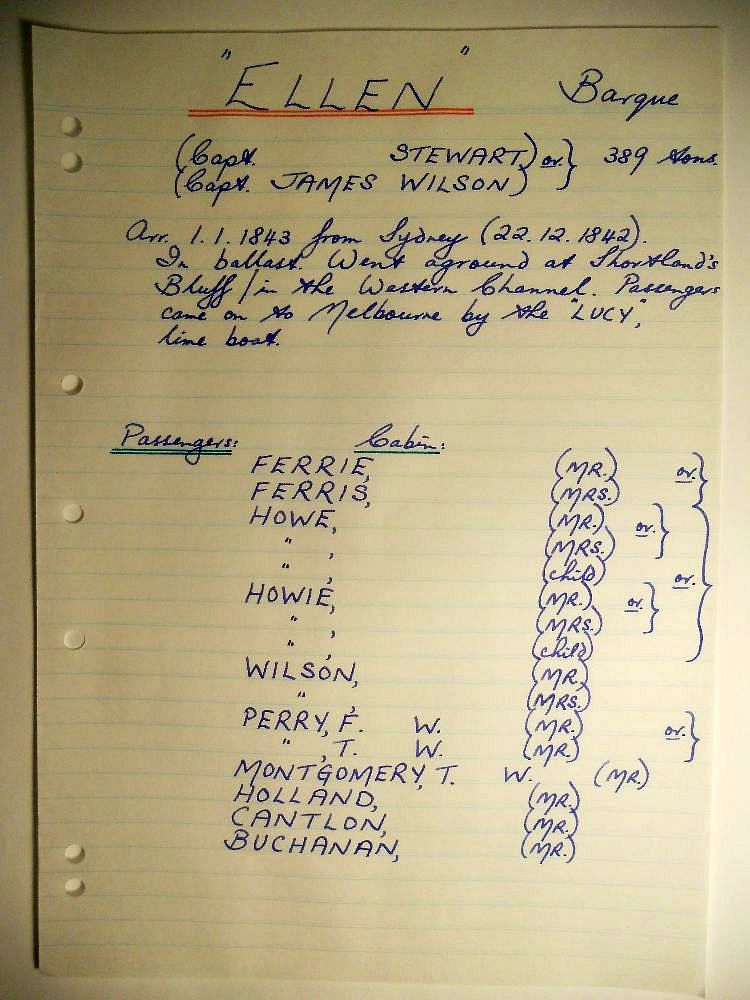 "ELLEN" Barque
(Capt. STEWART) or } 389 tons.
(Capt. JAMES WILSON)
Arr. 1.1.1843 from Sydney (22.12.1842).
In ballast. Went aground at Shortland's
Bluff / in the Western Channel. Passengers
came on to Melbourne by the "LUCY",
lime boat.
Passengers: Cabin:
FERRIE, (MR.) or. }
FERRIS, (MRS.)
HOWE, (MR.) or. }
" , (MRS.)
" , (child) or. }
HOWIE, (MR.) or. }
" , (MRS.)
" , (child)
WILSON, (MR.)
" , (MRS.)
PERRY, F. W. (MR.) or. }
" , T. W. (MR.)
MONTGOMERY, T. W. (MR.)
HOLLAND, (MR.)
CANTLON, (MR.)
BUCHANAN, (MR.)